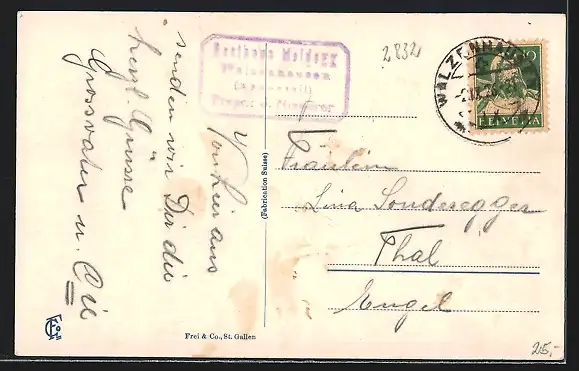 Gasthaus Meldegg
Walzenhausen
2832
WALZENHAUSEN
10
HELVETIA
Von hier aus
senden wir Dir die
herzl. Grüsse
Grossvater u.
(Fabrication Suisse)
Fräulein
Lina Sonderegger
Thal
Engel
Frei & Co., St. Gallen
25,-